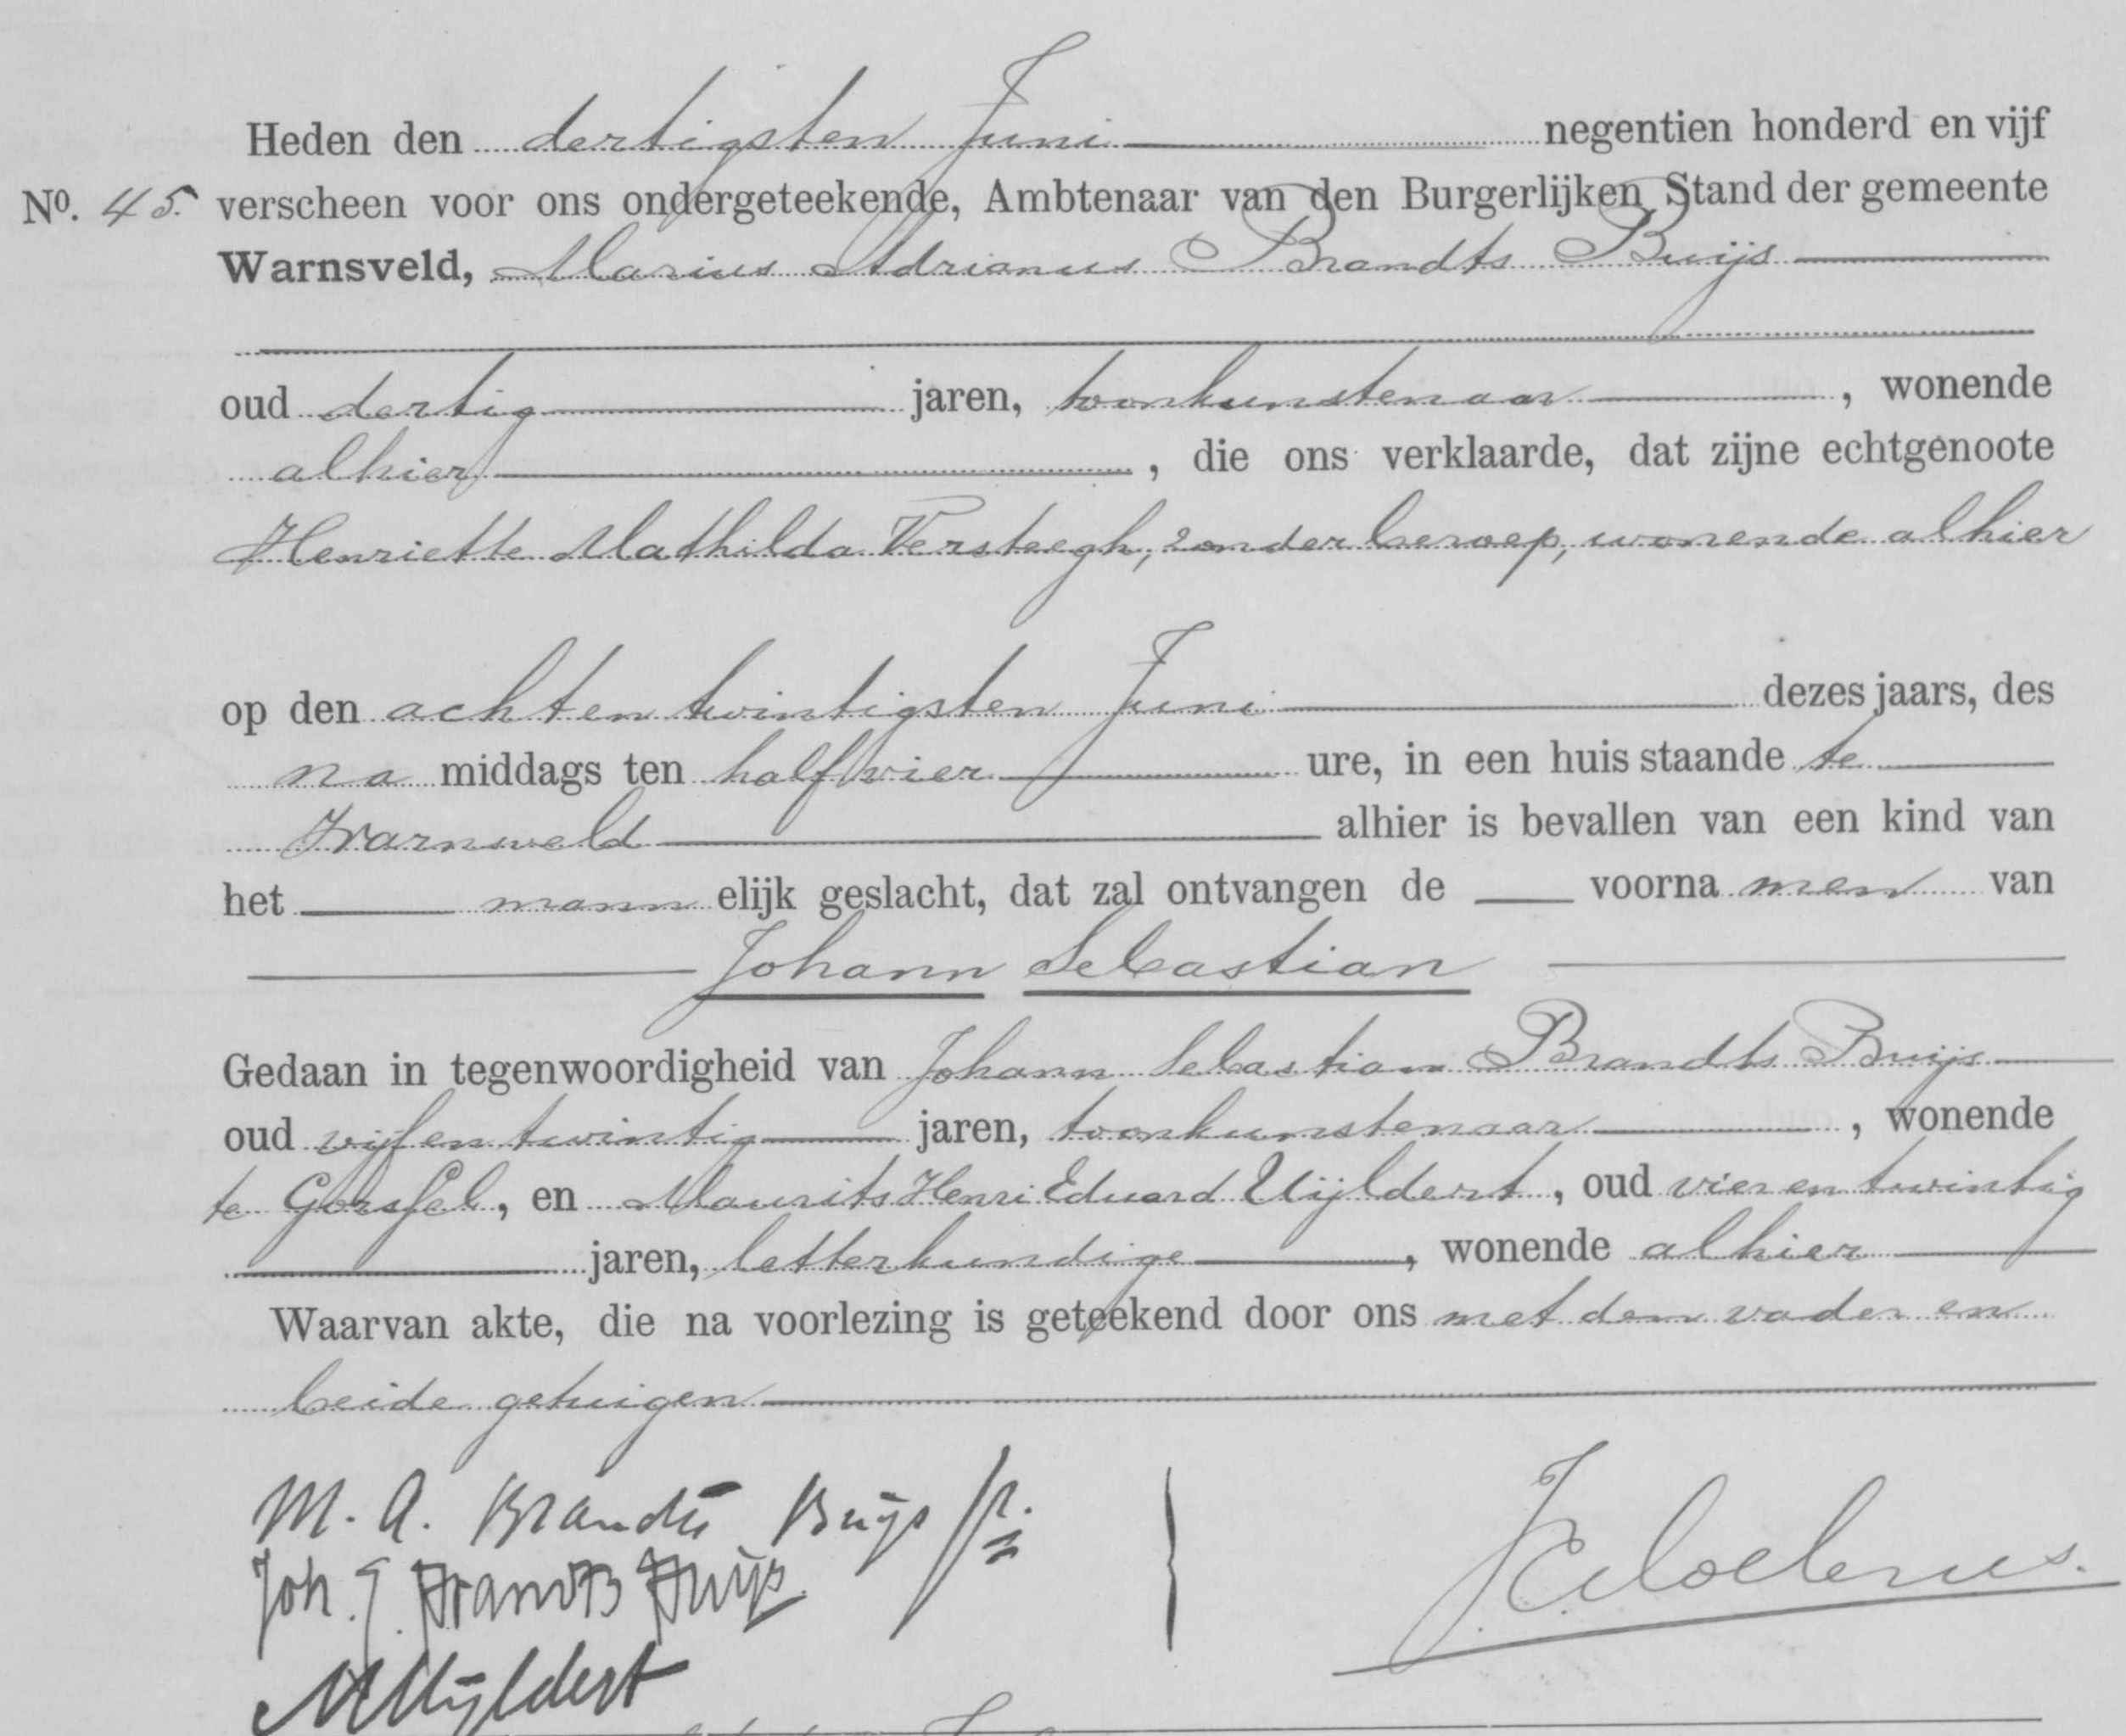 Heden den dertigsten Juni negentien honderd en vijf
No. 45. verscheen voor ons ondergeteekende, Ambtenaar van den Burgerlijken Stand der gemeente
Warnsveld, Marius Adrianus Brandts Buijs
oud dertig jaren, toonkunstenaar, wonende
alhier, die ons verklaarde, dat zijne echtgenoote
Henriette Mathilda Versteegh, zonder beroep, wonende alhier
op den achtentwintigsten Juni dezes jaars, des
na middags ten half vier ure, in een huis staande te
Warnsveld alhier is bevallen van een kind van
het mannelijk geslacht, dat zal ontvangen de voornamen van
Johann Sebastian
Gedaan in tegenwoordigheid van Johann Sebastian Brandts Buijs
oud vijfentwintig jaren, toonkunstenaar, wonende
te Gorssel, en Maurits Henri Eduard Uijldert, oud vierentwintig
jaren, letterkundige, wonende alhier
Waarvan akte, die na voorlezing is geteekend door ons met den vader en
beide getuigen
M. A. Brandts Buijs Jr.
Joh. S. Brandts Buijs
M Uijldert